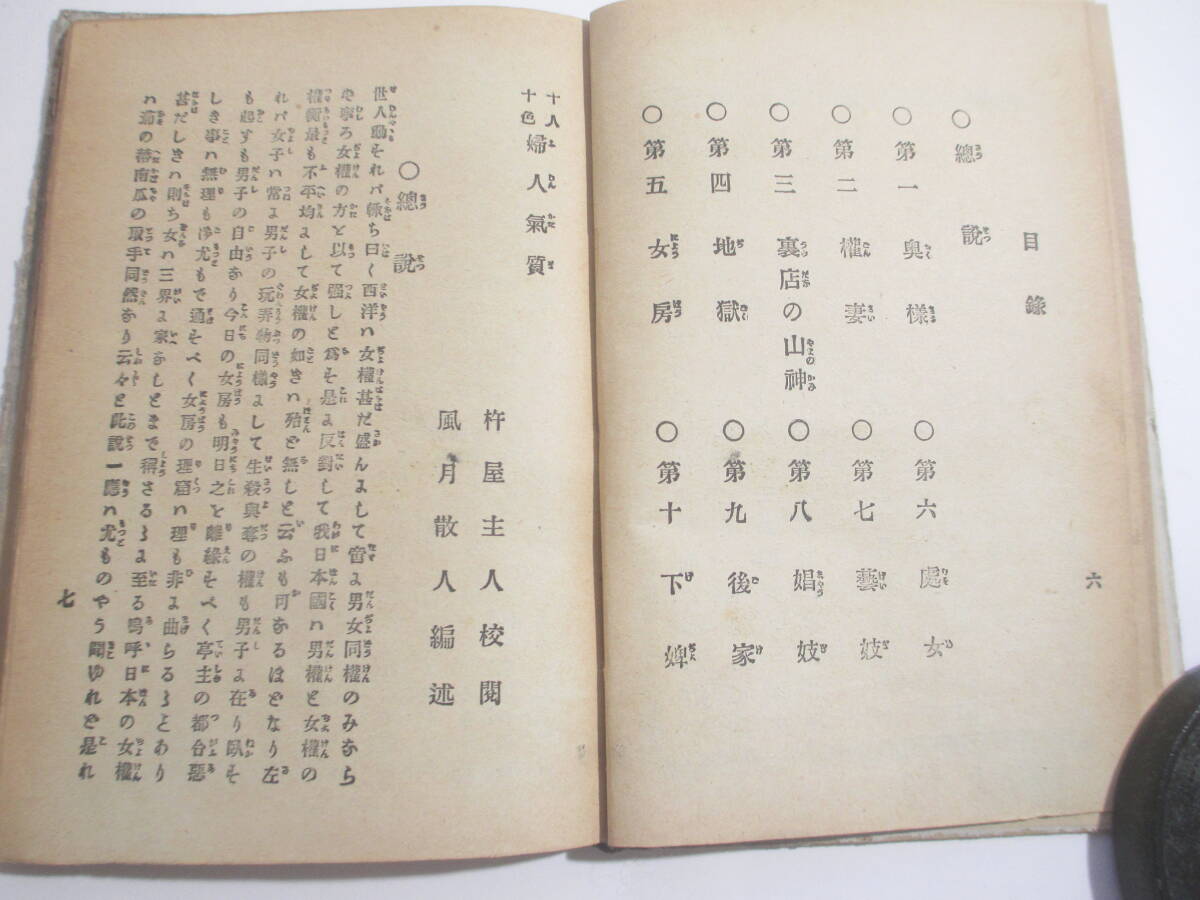 目錄
○總說
○第一 奥様
○第二 權妻
○第三 裏店の山神
○第四 地獄
○第五 女房
○第六 處女
○第七 藝妓
○第八 娼妓
○第九 後家
○第十 下婢
六
十人十色 婦人氣質
杵屋主人校閲
風月散人編述
○總說
世人動それバ輙ち曰く西洋ハ女權甚だ盛んよして啻よ男女同權のみあら
も寧ろ女權の方と以て强しと爲そ是よ反對して我日本國ハ男權と女權の
權衡最も不平均よして女權の如きハ殆ど無しと云ふも可あるほどなり左
れバ女子ハ常よ男子の玩弄物同樣よして生殺與奪の權も男子よ在り臥そ
も起すも男子の自由あり今日の女房も明日之を離緣そべく亭主の都合惡
しき事ハ無理も尤もで通そべく女房の理窟ハ理も非よ曲らるゝとあり
甚だしきハ則ち女ハ三界よ家あしとまで稱さるゝよ至る嗚呼日本の女權
ハ茄の蔕南瓜の取手同然あり云々と此說一應ハ尤ものやう聞ゆれど是れ
七